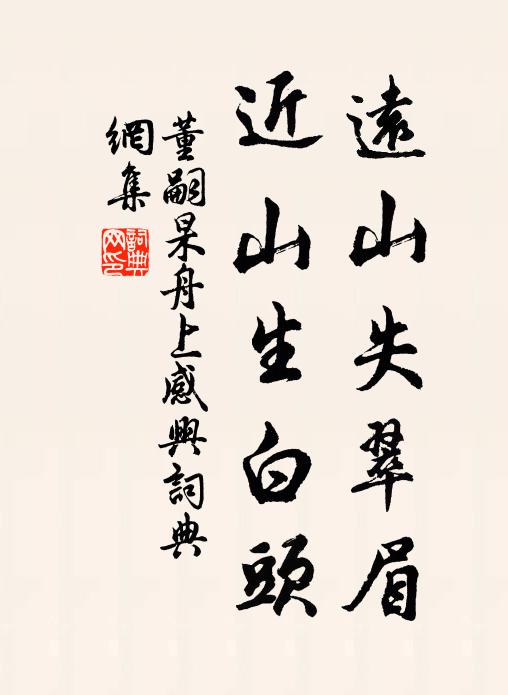 遠山失翠眉
近山生白頭
董嗣杲舟上感興詞典
網集
詞典網印